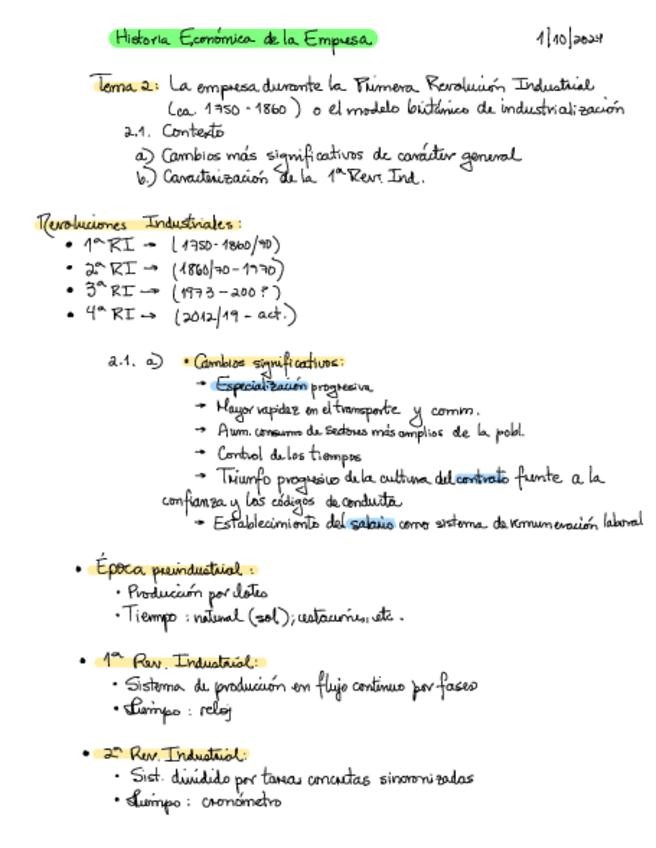 Historia Económica de la Empresa 1/10/2024
Tema 2: La empresa durante la Primera Revolución Industrial
(ca. 1750 - 1860) o el modelo británico de industrialización
2.1. Contexto
a) Cambios más significativos de carácter general
b) Caracterización de la 1ª Rev. Ind.
Revoluciones Industriales:
• 1ª RI → (1750-1860/70)
• 2ª RI → (1860/70-1970)
• 3ª RI → (1973-200?)
• 4ª RI → (2012/19 - act.)
2.1. a) • Cambios significativos:
→ Especialización progresiva
→ Mayor rapidez en el transporte y comm.
→ Aum. consumo de sectores más amplios de la pobl.
→ Control de los tiempos
→ Triunfo progresivo de la cultura del contrato frente a la
confianza y los códigos de conduita
→ Establecimiento del salario como sistema de remuneración laboral
• Época preindustrial:
• Producción por lotes
• Tiempo: natural (sol); estaciones, etc.
• 1ª Rev. Industrial:
• Sistema de producción en flujo continuo por fases
• Tiempo: reloj
• 2ª Rev. Industrial:
• Sist. dividido por tareas concretas sincronizadas
• Tiempo: cronómetro